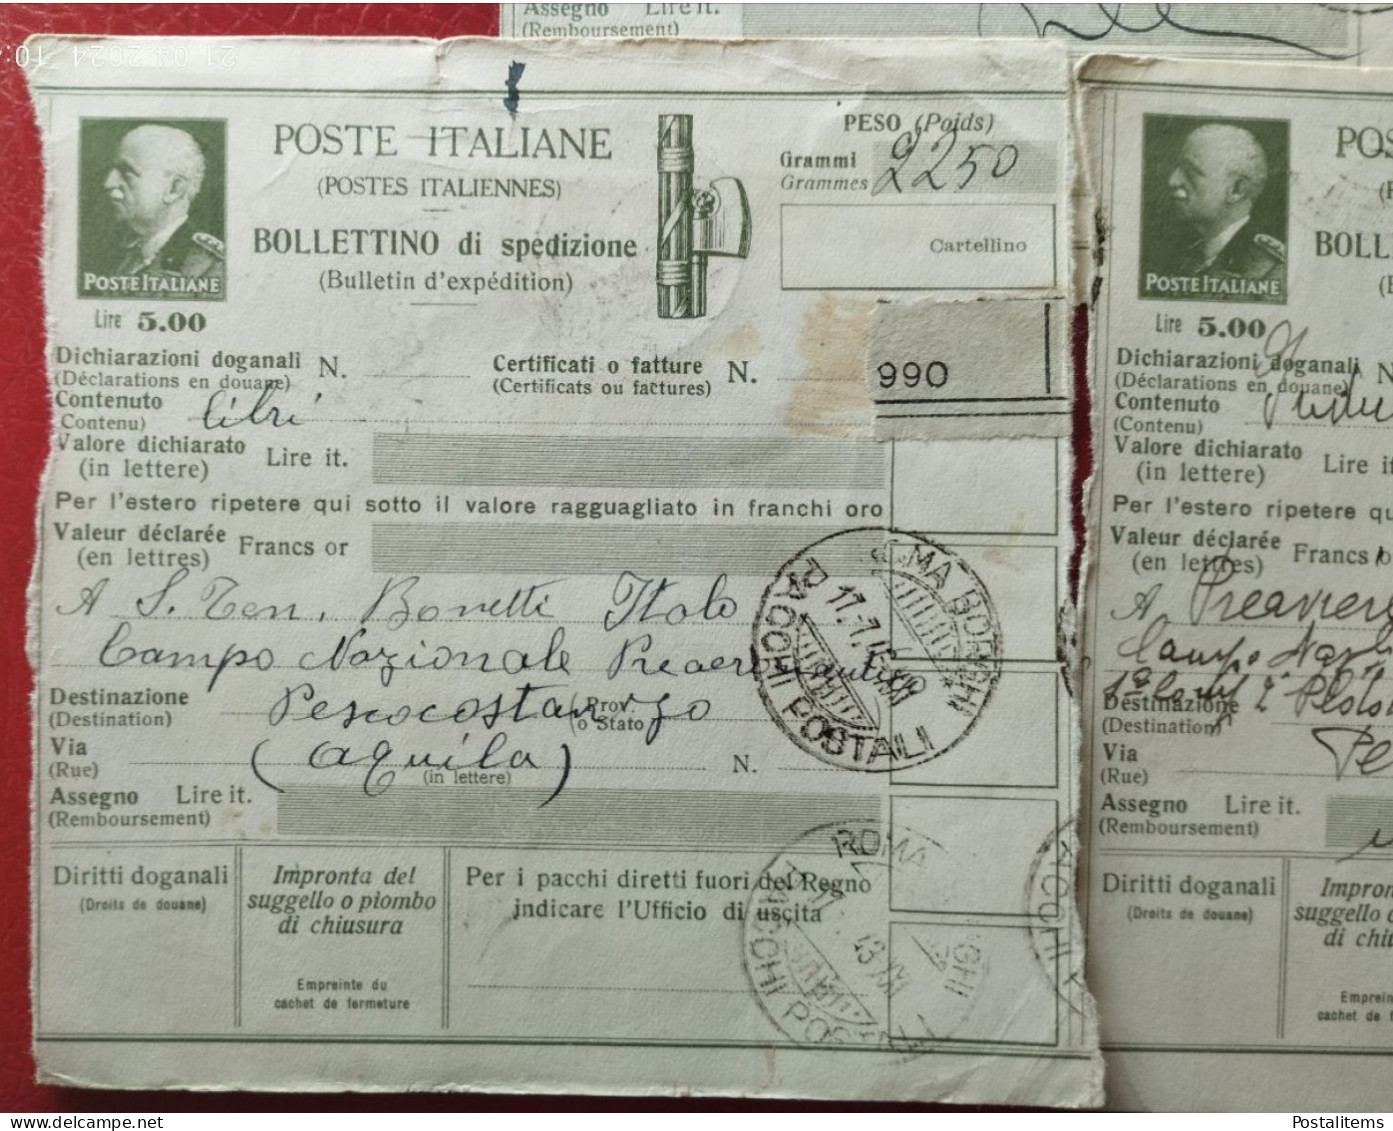 Assegno Lire it.
(Remboursement)
21 04 2024 10:4
POSTE ITALIANE
(POSTES ITALIENNES)
BOLLETTINO di spedizione
(Bulletin d'expédition)
PESO (Poids)
Grammi
Grammes 2250
Cartellino
POSTE ITALIANE
Lire 5.00
Dichiarazioni doganali N.
(Déclarations en douane)
Certificati o fatture N.
(Certificats ou factures)
990
Contenuto libri
(Contenu)
Valore dichiarato Lire it.
(in lettere)
Per l'estero ripetere qui sotto il valore ragguagliato in franchi oro
Valeur déclarée Francs or
(en lettres)
A S. Ten. Bonetti Italo
Campo Nazionale Preaeronautico
Destinazione Pescocostanzo Prov.
(Destination) o Stato
Via (Aquila) N.
(Rue) (in lettere)
Assegno Lire it.
(Remboursement)
Diritti doganali
(Droits de douane)
Impronta del
suggello o piombo
di chiusura
Empreinte du
cachet de fermeture
Per i pacchi diretti fuori del Regno
indicare l'Ufficio di uscita
ROMA BORGHI
PACCHI POSTALI
ROMA
PACCHI POSTALI
POS
BOLL
POSTE ITALIANE
Lire 5.00
Dichiarazioni doganali N
(Déclarations en douane)
Contenuto
(Contenu)
Valore dichiarato Lire it
(in lettere)
Per l'estero ripetere qu
Valeur déclarée Francs o
(en lettres)
A
Campo
Destinazione
(Destination)
Via
(Rue)
Assegno Lire it.
(Remboursement)
Diritti doganali
(Droits de douane)
Impron
suggello o
di chiu
Emprein
cachet de f
Postalitems